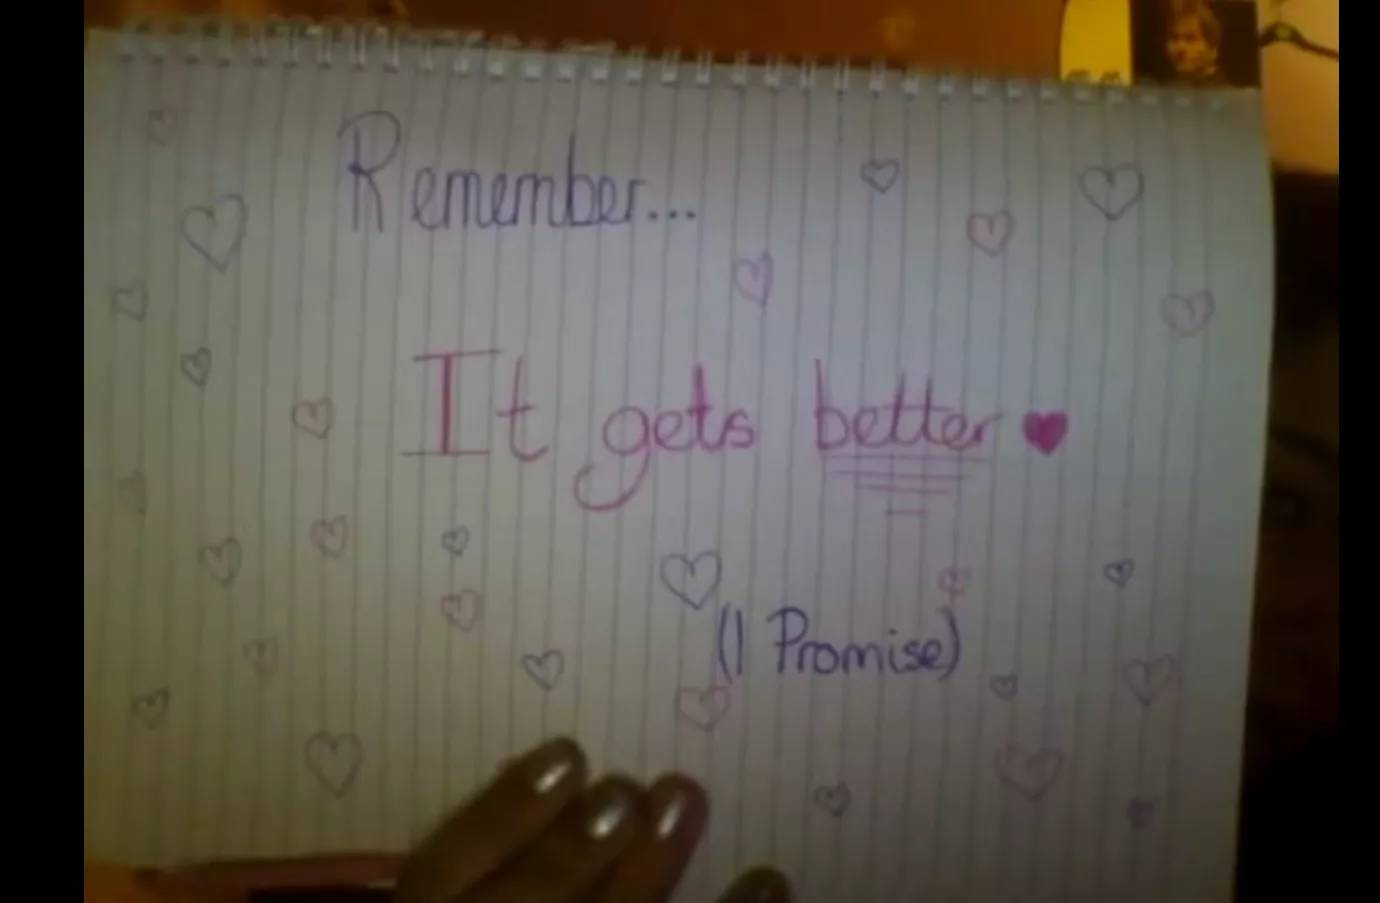 Remember...
It gets better ♥
(I Promise)